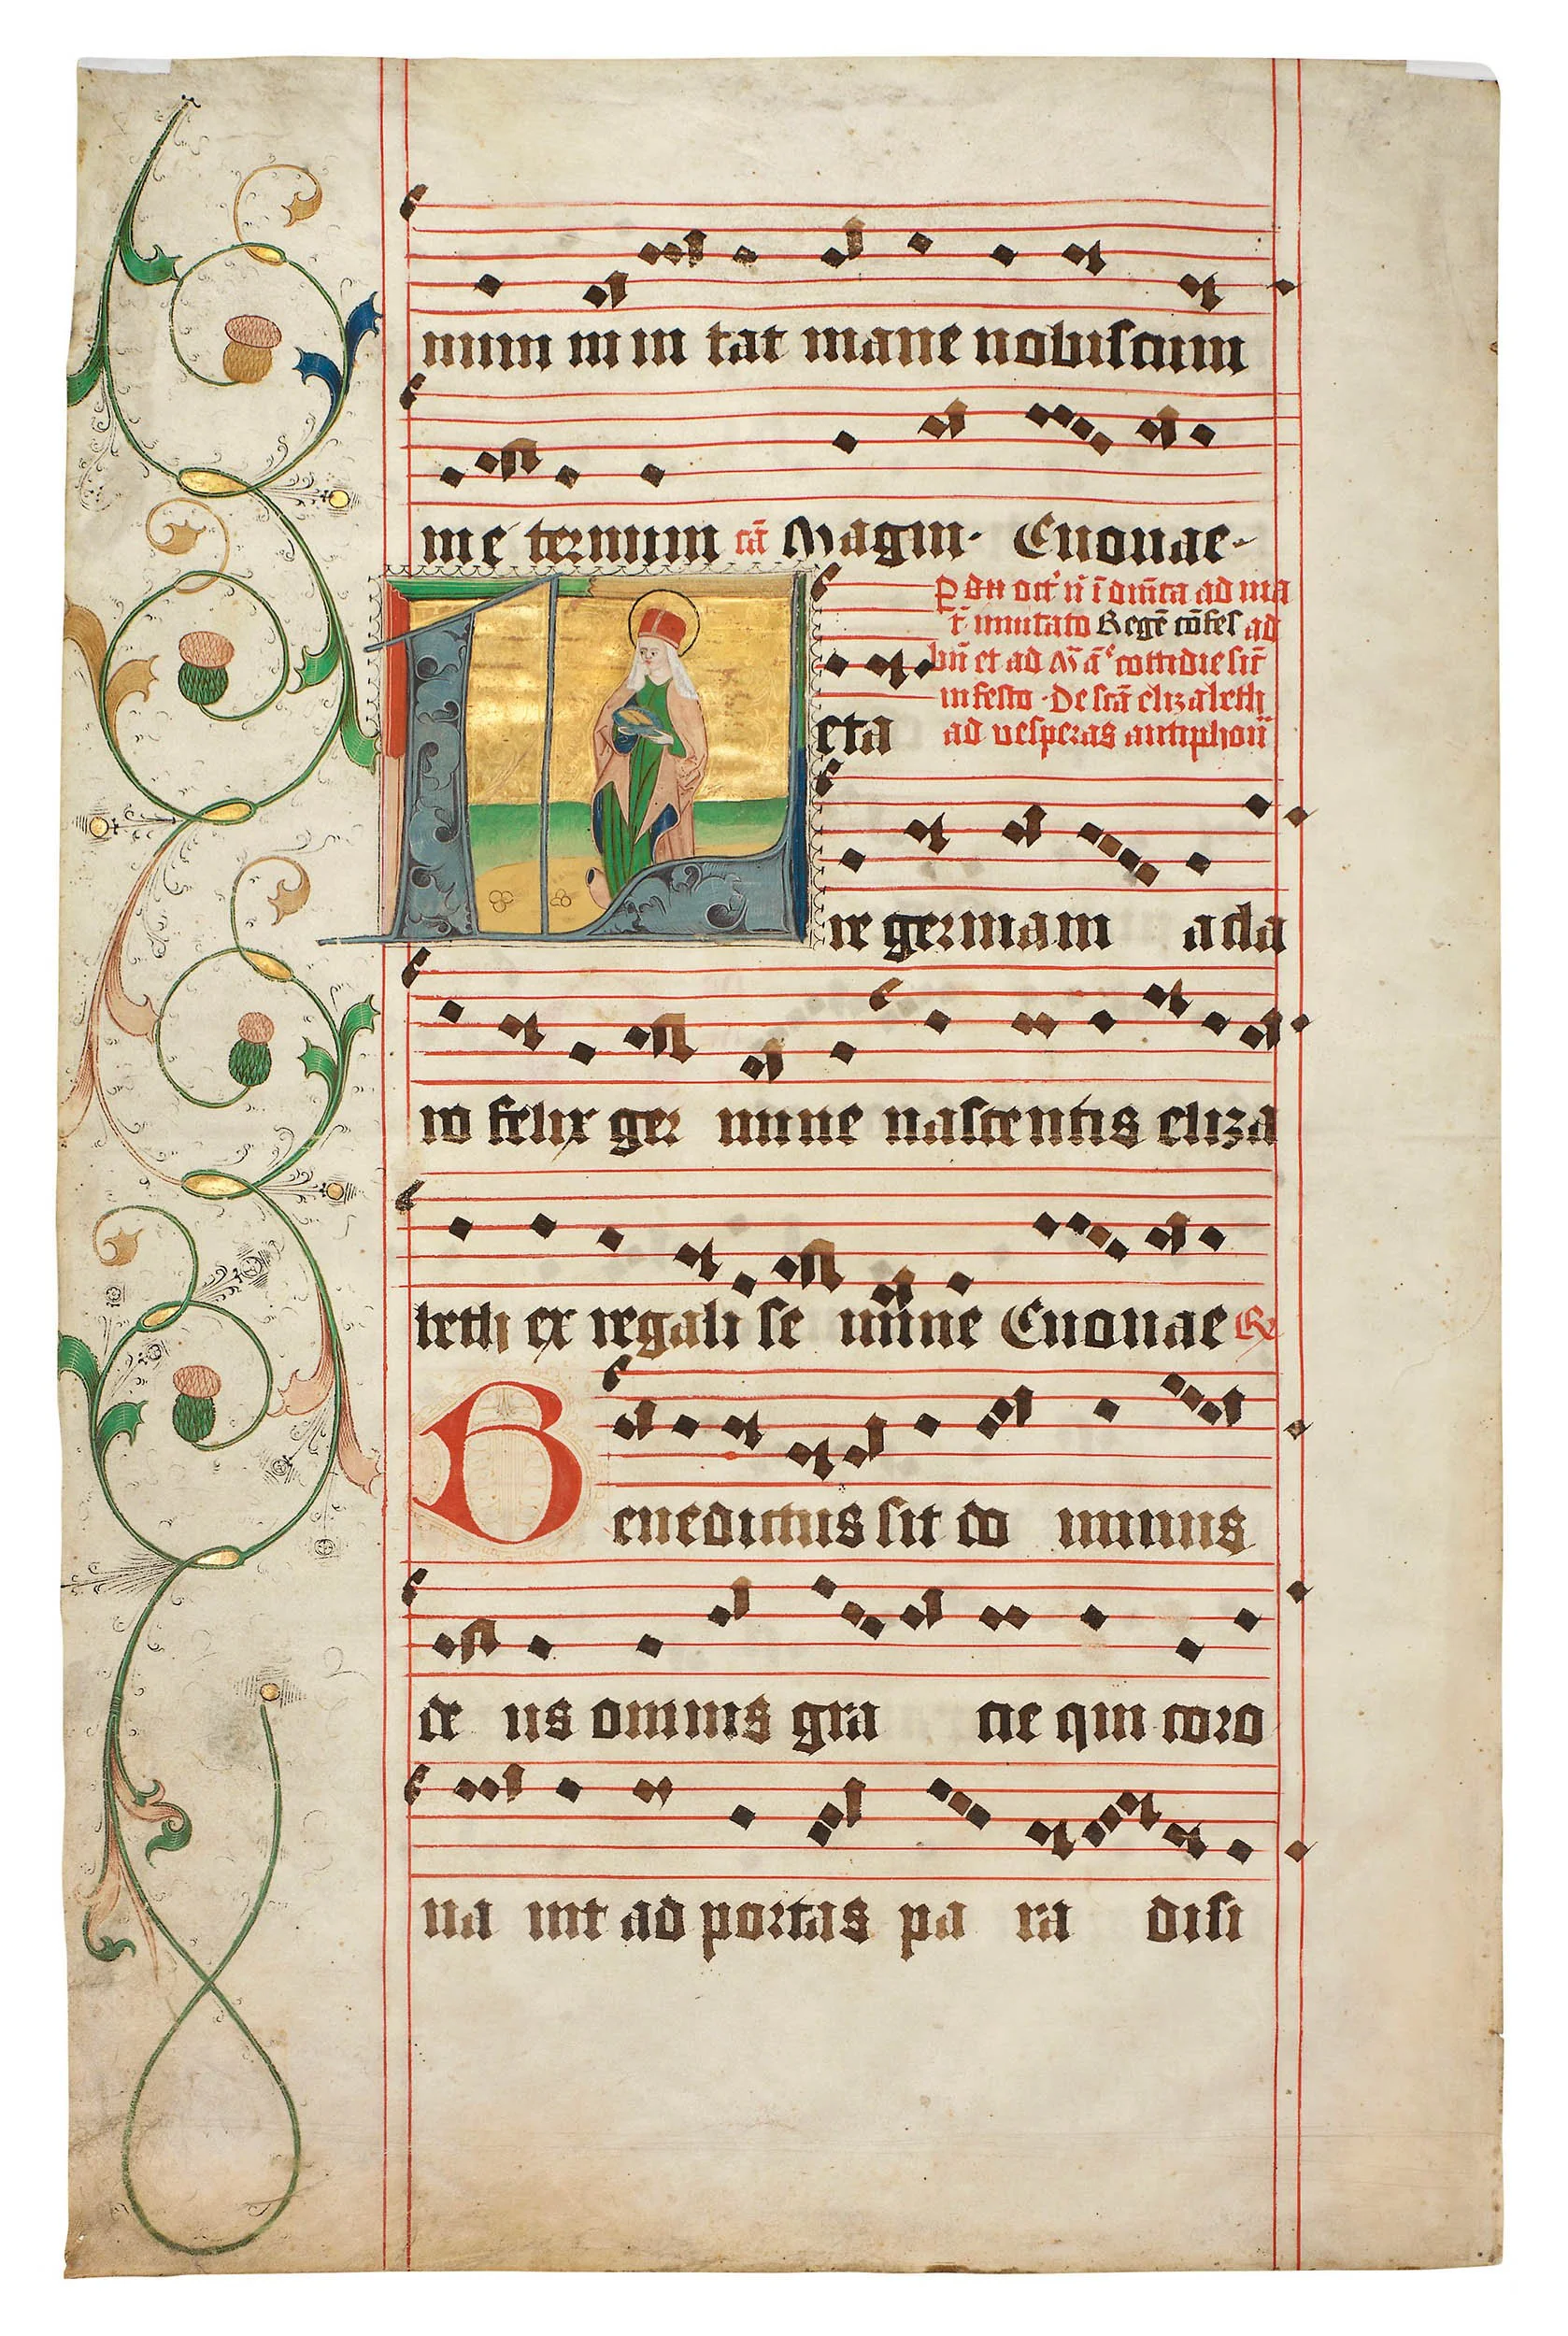 num in ui tat mane nobiscum
in e ternum cā Magni· Euouae
octˀ n̄ ī dn̄ica ad ma
t̄ inuitato Regē cōfes ad
bn̄ et ad M̄ ā cottidie sic̄
in festo · De sctā elizabeth
Leta ad vesperas antiphon̄
re germania cla
ro felix ger mine nascentis eliza
beth ex regali se mine Euouae R
Benedictus sit do minus
de us omnis gra cie qui coro
na uit ad portas pa ra disi